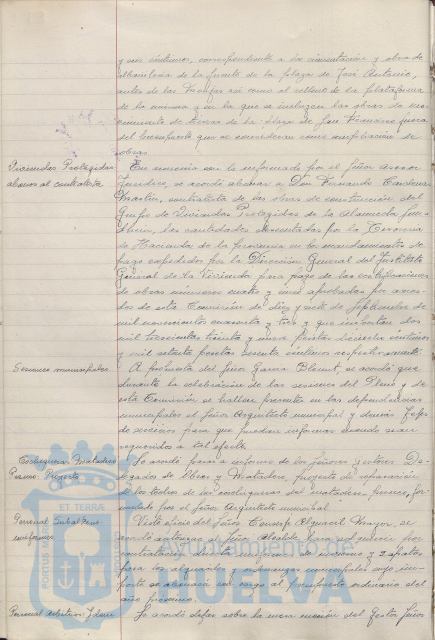 y seis céntimos, correspondiente a la cimentación y obra de
albañilería de la fuente de la plaza de José Antonio,
antes de las Monjas así como el relleno de la plataforma
de la misma y en la que se incluyen las obras de
de la plaza de San Francisco fuera
del Presupuesto que se consideran como ampliación de
obras.
Viviendas Protegidas
abonos al contratista
En armonía con lo informado por el Señor Asesor
Jurídico, se acordó abonar a Don Fernando Cardenas
Martín, contratista de las obras de construcción del
Grupo de Viviendas Protegidas de la Alameda
las cantidades descontadas por la Tesorería
de Hacienda de la provincia en los mandamientos de
pago expedidos por la Dirección General del Instituto
Nacional de la Vivienda para pago de las certificaciones
de obras números cuatro y uno aprobadas por acuerdos
de esta Comisión de diez y siete de Septiembre de
mil novecientos cuarenta y tres y que importan dos
mil trescientas treinta y nueve pesetas diecisiete céntimos
y mil setenta pesetas sesenta céntimos respectivamente.
Servicios municipales
A propuesta del Señor García se acordó que
durante la celebración de las sesiones del Pleno y de
esta Comisión se hallen presentes en las dependencias
municipales el Señor Arquitecto municipal y demás Jefes
de servicios para que puedan informar cuando sean
requeridos a tal efecto.
Matadero
Proyecto
Se acordó pasar a informe de los Señores Gestores De-
legados de Obras y Matadero, proyecto de reparación
de los techos de las del matadero
por el Señor Arquitecto municipal.
Personal Subalterno
uniformes
Visto oficio del Señor Conserje Alguacil Mayor, se
acordó autorizar al Señor Alcalde para adquirir por
contratación directa uniformes de invierno y zapatos
para los alguaciles y ordenanzas municipales cuyo im-
porte se abonará con cargo al presupuesto ordinario del
año próximo.
Personal
Se acordó dejar sobre la mesa moción del Gestor Señor
Ayuntamiento de
HUELVA
PORTUS
ET TERRAE